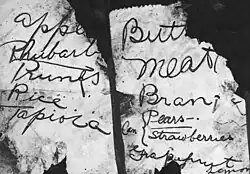 appe
Rhubarb
Prunes
Rice
Tapioca
Butt
meat
Bran
Pears
Can
Strawberries
Grapefruit
Lemo